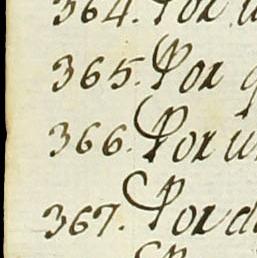 364. Por
365. Por
366. Por un
367. Por d